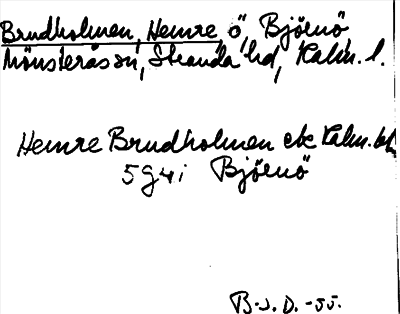 Brudholmen, Hemre ö, Björnö
Mönsterås sn, Stranda hd, Kalm. l.
Hemre Brudholmen ek Kalm. bl
5G4i Björnö
B-J. D. -55.